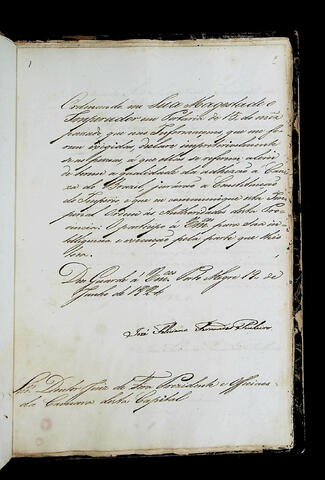 1
Ordenando me Sua Magestade o
Imperador em Portaria de 15 do mez
passado, que nas Informaçoens que me fo
rem exigidas declare impreterivelmente
se as pessoas, a que ellas se referem, alem
de terem a qualidade de adhezão a Cau
za do Brazil jurarão a Constituição
do Imperio e que eu communique esta Im
perial Ordem às Authoridades desta Pro
vincia. O participo a Vmces para sua in
telligencia e execução pela parte que lhes
toca.
Deos Guarde a Vmces Porto Alegre 12 de
Junho de 1824
José Feliciano Fernandes Pinheiro
Snr. Doutor Juiz de Fora Prezidente e Officiaes
da Camara desta Capital